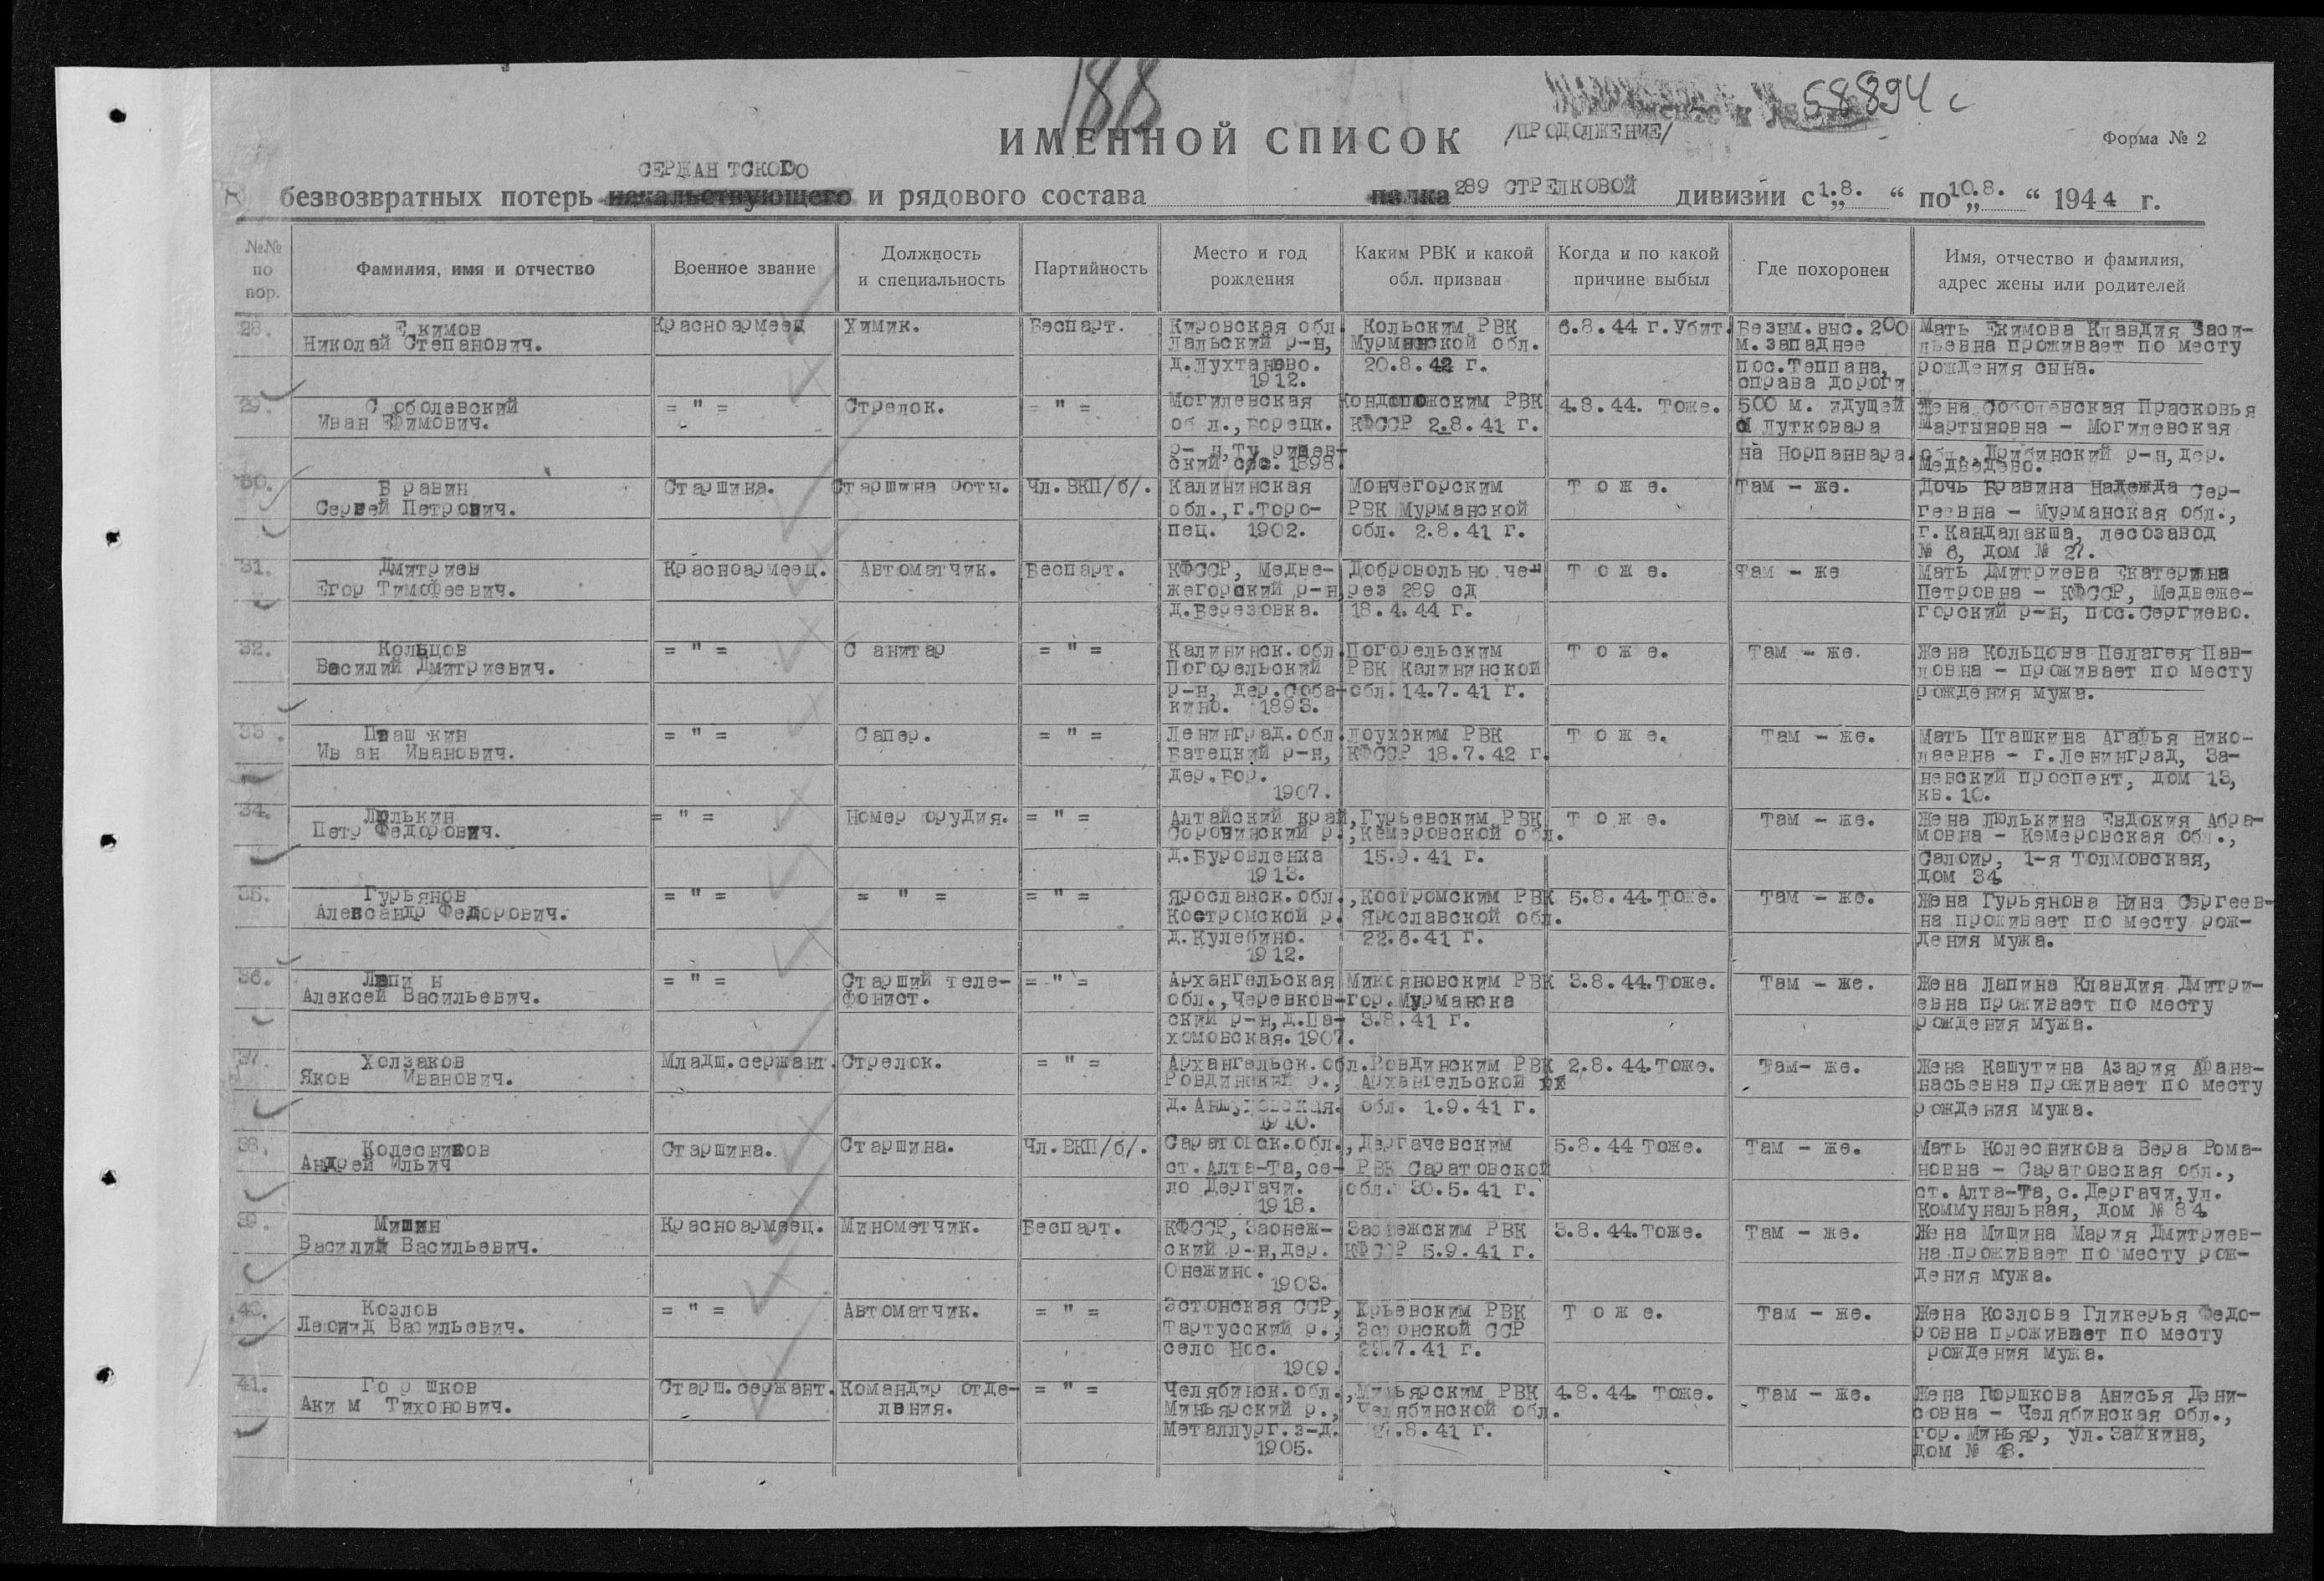 188
58894 с
ИМЕННОЙ СПИСОК /ПРОДОЛЖЕНИЕ/
Форма № 2
СЕРЖАНТСКОГО
безвозвратных потерь и рядового состава 289 СТРЕЛКОВОЙ дивизии с „1.8. “ по „10.8. “ 1944 г.
№№ по пор.
Фамилия, имя и отчество
Военное звание
Должность и специальность
Партийность
Место и год рождения
Каким РВК и какой обл. призван
Когда и по какой причине выбыл
Где похоронен
Имя, отчество и фамилия, адрес жены или родителей
28. Екимов Красноармеец Химик. Беспарт. Кировская обл. Кольским РВК 6.8.44 г. Убит. Безым.выс.200 Мать Екимова Клавдия Васи-
Николай Степанович. Лальский р-н, Мурманской обл. м.западнее льевна проживает по месту
д.Лухтаново. 20.8.42 г. пос.Теппана, рождения сына.
1912. справа дороги
29. Соболевский = " = Стрелок. = " = Могилевская Кондопожским РВК 4.8.44. Тоже. 500 м. идущей Жена Соболевская Прасковья
Иван Ефимович. обл.,Борецк. КФССР 2.8.41 г. Лутковара Мартыновна - Могилевская
р-н, на Норпанвара. обл., Дрибинский р-н,дер.
ский с/с. 1898. Медведево.
30. Бравин Старшина. Старшина роты. Чл.ВКП/б/. Калининская Мончегорским Тоже. Там - же. Дочь Бравина Надежда Сер-
Сергей Петрович. обл.,г.Торо- РВК Мурманской геевна - Мурманская обл.,
пец. 1902. обл. 2.8.41 г. г.Кандалакша, лесозавод
№ 6, дом № 27.
31. Дмитриев Красноармеец. Автоматчик. Беспарт. КФССР, Медве- Добровольно че- Тоже. Там - же Мать Дмитриева Екатерина
Егор Тимофеевич. жегорский р-н, рез 289 сд Петровна - КФССР, Медвеже-
д.Березовка. 18.4.44 г. горский р-н, пос.Сергиево.
32. Кольцов = " = Санитар = " = Калининск.обл. Погорельским Тоже. Там - же. Жена Кольцова Пелагея Пав-
Василий Дмитриевич. Погорельский РВК Калининской ловна - проживает по месту
р-н, дер.Соба- обл.14.7.41 г. рождения мужа.
кино. 1893.
33. Пташкин = " = Сапер. = " = Ленинград.обл. Лоухским РВК Тоже. Там - же. Мать Пташкина Агафья Нико-
Иван Иванович. Батецкий р-н, КФССР 18.7.42 г. лаевна - г.Ленинград, За-
дер.Бор. невский проспект, дом 13,
1907. кв.10.
34. Люлькин = " = Номер орудия. = " = Алтайский край, Гурьевским РВК Тоже. Там - же. Жена Люлькина Евдокия Абра-
Петр Федорович. Сорочинский р., Кемеровской обл. мовна - Кемеровская обл.,
д.Буровленка 15.9.41 г. Салоир, 1-я Толмовская,
1913. дом 34
35. Гурьянов = " = = " = = " = Ярославск.обл., Костромским РВК 5.8.44.Тоже. Там - же. Жена Гурьянова Нина Сергеев-
Александр Федорович. Костромской р. Ярославской обл. на проживает по месту рож-
д.Кулебино. 22.6.41 г. дения мужа.
1912.
36. Лапин = " = Старший теле- = " = Архангельская Микояновским РВК 3.8.44.Тоже. Там - же. Жена Лапина Клавдия Дмитри-
Алексей Васильевич. фонист. обл.,Черевков- гор.Мурманска евна проживает по месту
ский р-н,д.Па- 3.8.41 г. рождения мужа.
хомовская.1907.
37. Холзаков Младш.сержант. Стрелок. = " = Архангельск.обл. Ровдинским РВК 2.8.44.Тоже. Там- же. Жена Кашутина Азария Афана-
Яков Иванович. Ровдинский р., Архангельской насьевна проживает по месту
обл. 1.9.41 г. рождения мужа.
1910.
38. Колесников Старшина. Старшина. Чл.ВКП/б/. Саратовск.обл., Дергачевским 5.8.44 Тоже. Там - же. Мать Колесникова Вера Рома-
Андрей Ильич ст.Алта-Та,се- РВК Саратовской новна - Саратовская обл.,
ло Дергачи. обл. 30.5.41 г. ст. Алта-Та,с.Дергачи,ул.
1918. Коммунальная, дом № 84
39. Мишин Красноармеец. Минометчик. Беспарт. КФССР, Заонеж- Заонежским РВК 3.8.44.Тоже. Там - же. Жена Мишина Мария Дмитриев-
Василий Васильевич. ский р-н,дер. КФССР 5.9.41 г. на проживает по месту рож-
Онежино. дения мужа.
1903.
40. Козлов = " = Автоматчик. = " = Эстонская ССР, Юрьевским РВК Тоже. Там - же. Жена Козлова Гликерья Федо-
Леонид Васильевич. Тартусский р., Эстонской ССР ровна проживает по месту
село Нос. рождения мужа.
1909.
41. Горшков Старш.сержант. Командир отде- = " = Челябинск.обл., Миньярским РВК 4.8.44. Тоже. Там - же. Жена Горшкова Анисья Дени-
Аким Тихонович. ления. Миньярский р., Челябинской обл. совна - Челябинская обл.,
Металлург.з-д. гор.Миньяр, ул.Зайкина,
1905. дом № 43.